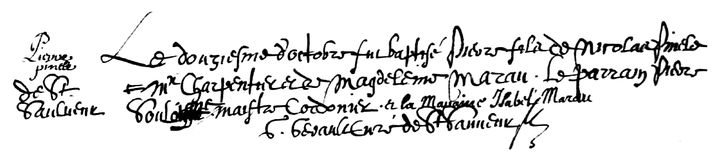 Pierre
pinele
de St.
Sauveur
Le douziesme d'octobre fut baptisé Pierre fils de Nicolas Pinele
et Mr Charpentier et de Magdeleine Marau. Le parrain Pierre
maistre Cordonnier et la Maraine Isabel Marau
G. Gerault Curé de St Sauveur